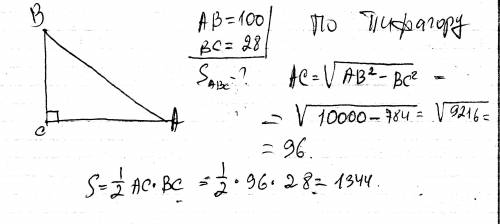 B
C
A
AB = 100
BC = 28
S_ABC = ?
По Пифагору
AC = √(AB² − BC²) =
= √(10000 − 784) = √9216 =
= 96.
S = 1/2 AC · BC = 1/2 · 96 · 28 = 1344.